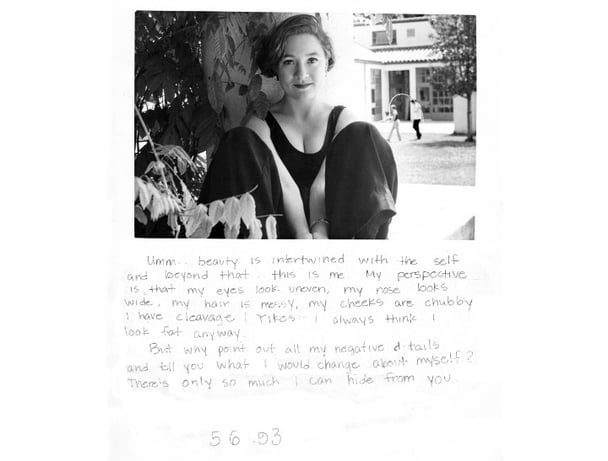 Umm.. beauty is intertwined with the self
and beyond that.. this is me. My perspective
is that my eyes look uneven, my nose looks
wide, my hair is messy, my cheeks are chubby
i have cleavage! Yikes.. i always think i
look fat anyway.
But why point out all my negative d-tails
and tell you what i would change about myself?
There's only so much i can hide from you.
5 6 .93